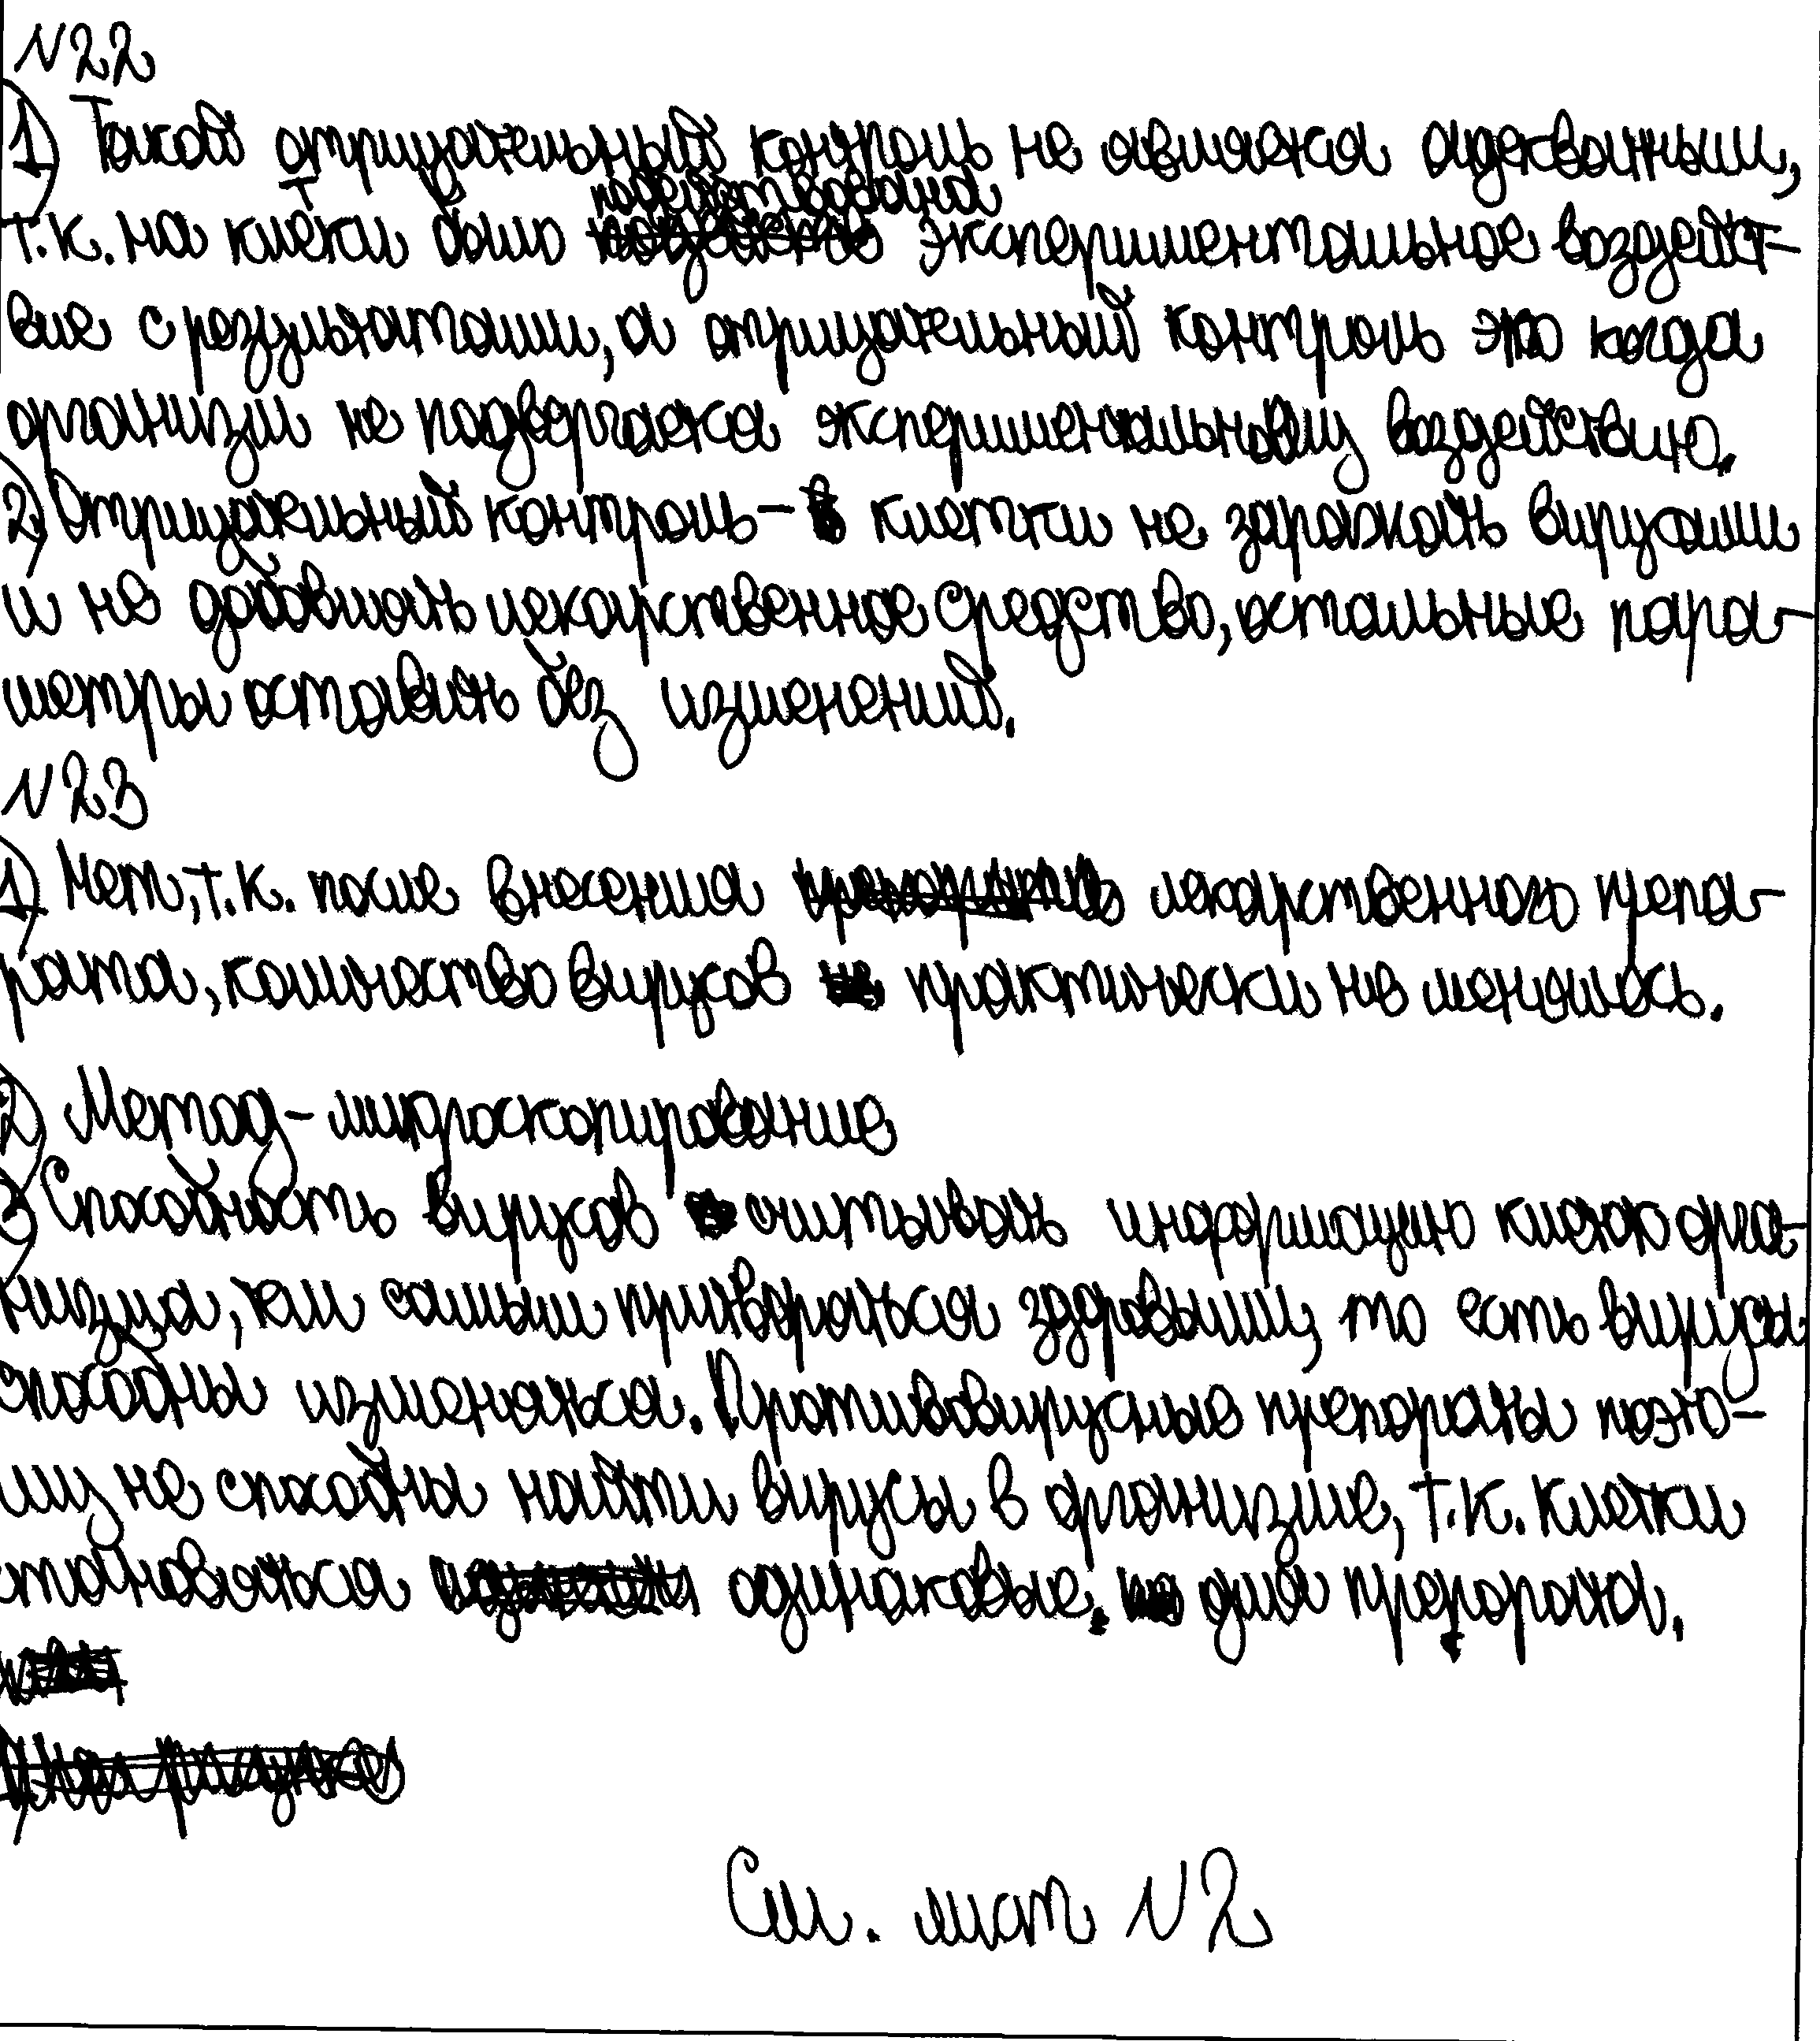 N22
1) Такой отрицательный контроль не является адекватным,
т.к. на клетки было подействована экспериментальное воздейст-
вие с результатами, а отрицательный контроль это когда
организм не подвергается экспериментальному воздействию.
2) Отрицательный контроль - клетки не заражать вирусами
и не добавлять лекарственное средство, остальные пара-
метры оставить без изменений.
N23
1) Нет, т.к. после внесения лекарственного препа-
рата, количество вирусов практически не менялось.
2) Метод - микроскопирование
3) Способность вирусов считывать информацию клеток орга-
низма, тем самым притворяться здоровыми, то есть вирусы
способны изменяться. Противовирусные препараты поэто-
му не способны найти вирусы в организме, т.к. клетки
становяться одинаковые для препарата.
См. лист N2